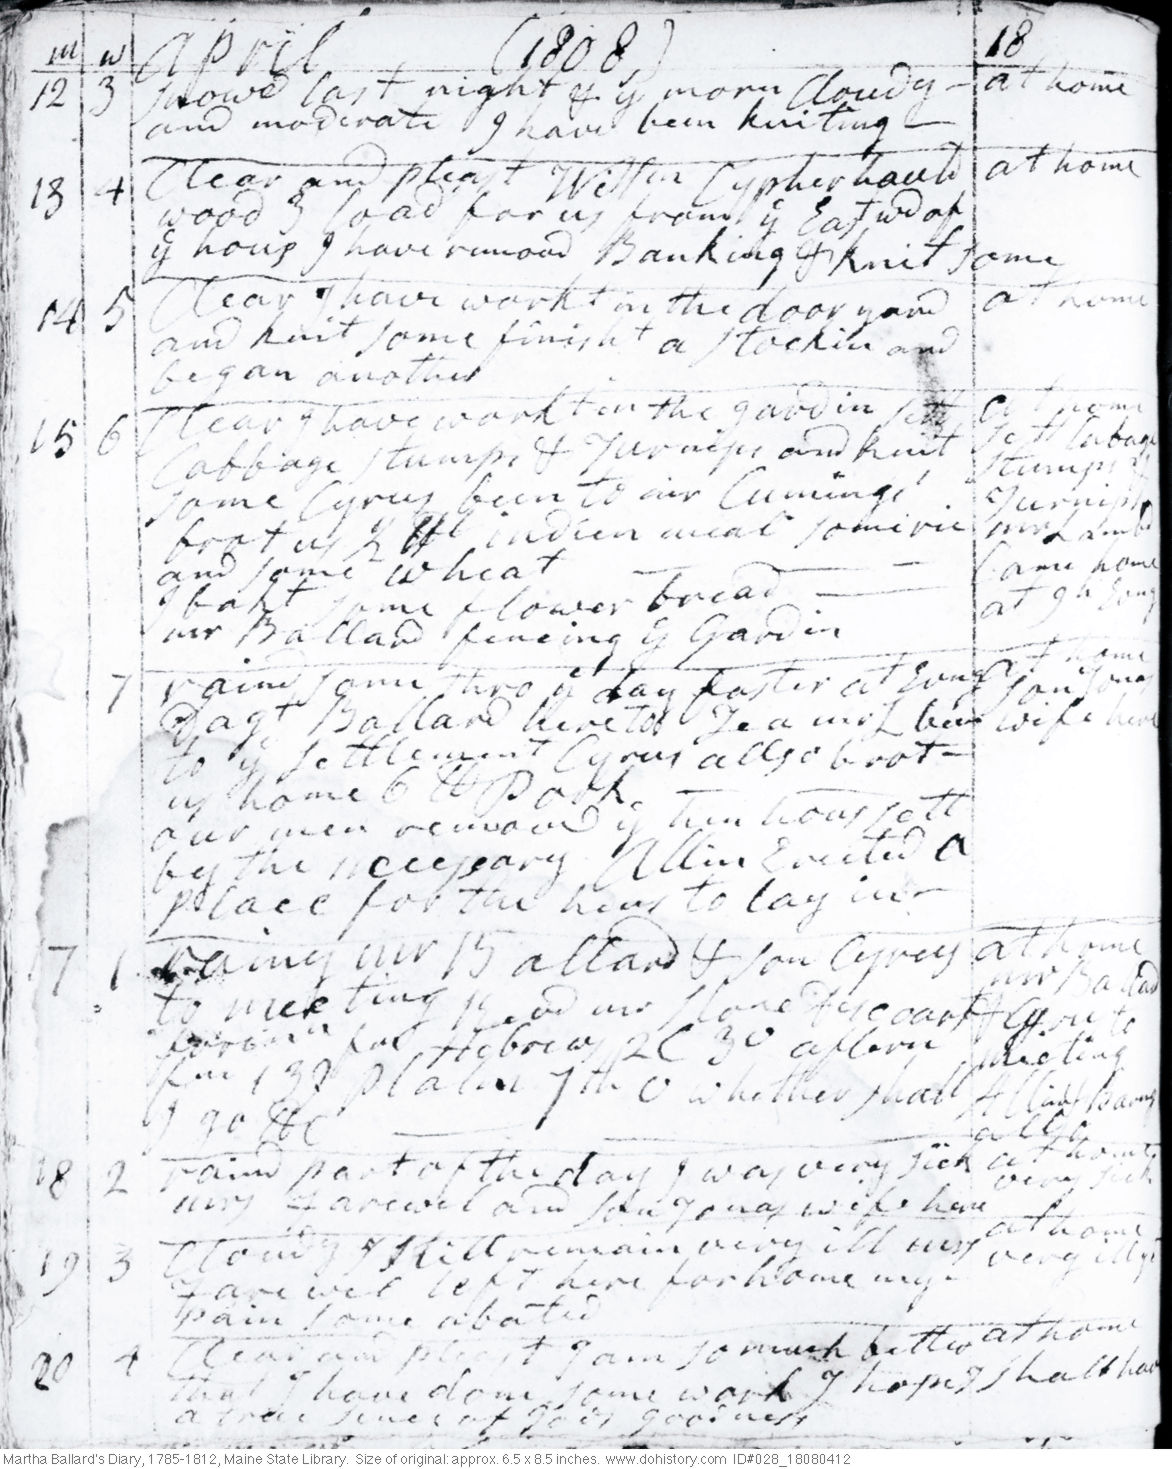 m w April (1808) 18
12 3 Snowd last night & ys morn Cloudy - at home
and moderate I have been kniting -
13 4 Clear and pleast Willm Cypher hauld at home
wood 3 load for us from ye East wd of
ye hous I have remood Banking & knit some
14 5 Clear I have workt in the door yard at home
and knit some finisht a stockin and
began another
15 6 Clear I have workt in the gardin sett at home
Cabbage stumps & Turnips and knit sett Cabage
some Cyrus been to mr Cumings' stumps &
brot us 2 indien meal some Turnips
and some wheat mr Lambd
I bakt some flower bread Came home
mr Ballard fencing ye Gardin at 9 h Evng
7 raind some thro ye day faster at Evng at home
Dagt Ballard here to Tea mr L been son Jonas
to ye settlement Cyrus allso brot - wife here
us home 6 lb Pork
our men remood ye hen hous sett
by the necessary Allin Erected a
place for the hens to lay in -
17 1 rainy mr Ballard & son Cyrus at home
to meeting revd mr Stone discoarst mr Ballard
forenn fm Hebrews 2 C 3 v aftern & Cyrus to
fm 139 Psalm 7th v whether shall meeting
I go &C Allin Barns
allso
18 2 raind part of the day I was very sick at home
mrs Farewel and son Jonas wife here very sick
19 3 Cloudy I Still remain very ill mrs at home
Farewel left here for home my - very ill
pain some abated
20 4 Clear and pleast I am so much better at home
that I have done some work I hope I shall have
a true sence of Gods goodness
Martha Ballard's Diary, 1785-1812, Maine State Library. Size of original: approx. 6.5 x 8.5 inches. www.dohistory.com ID#028_18080412